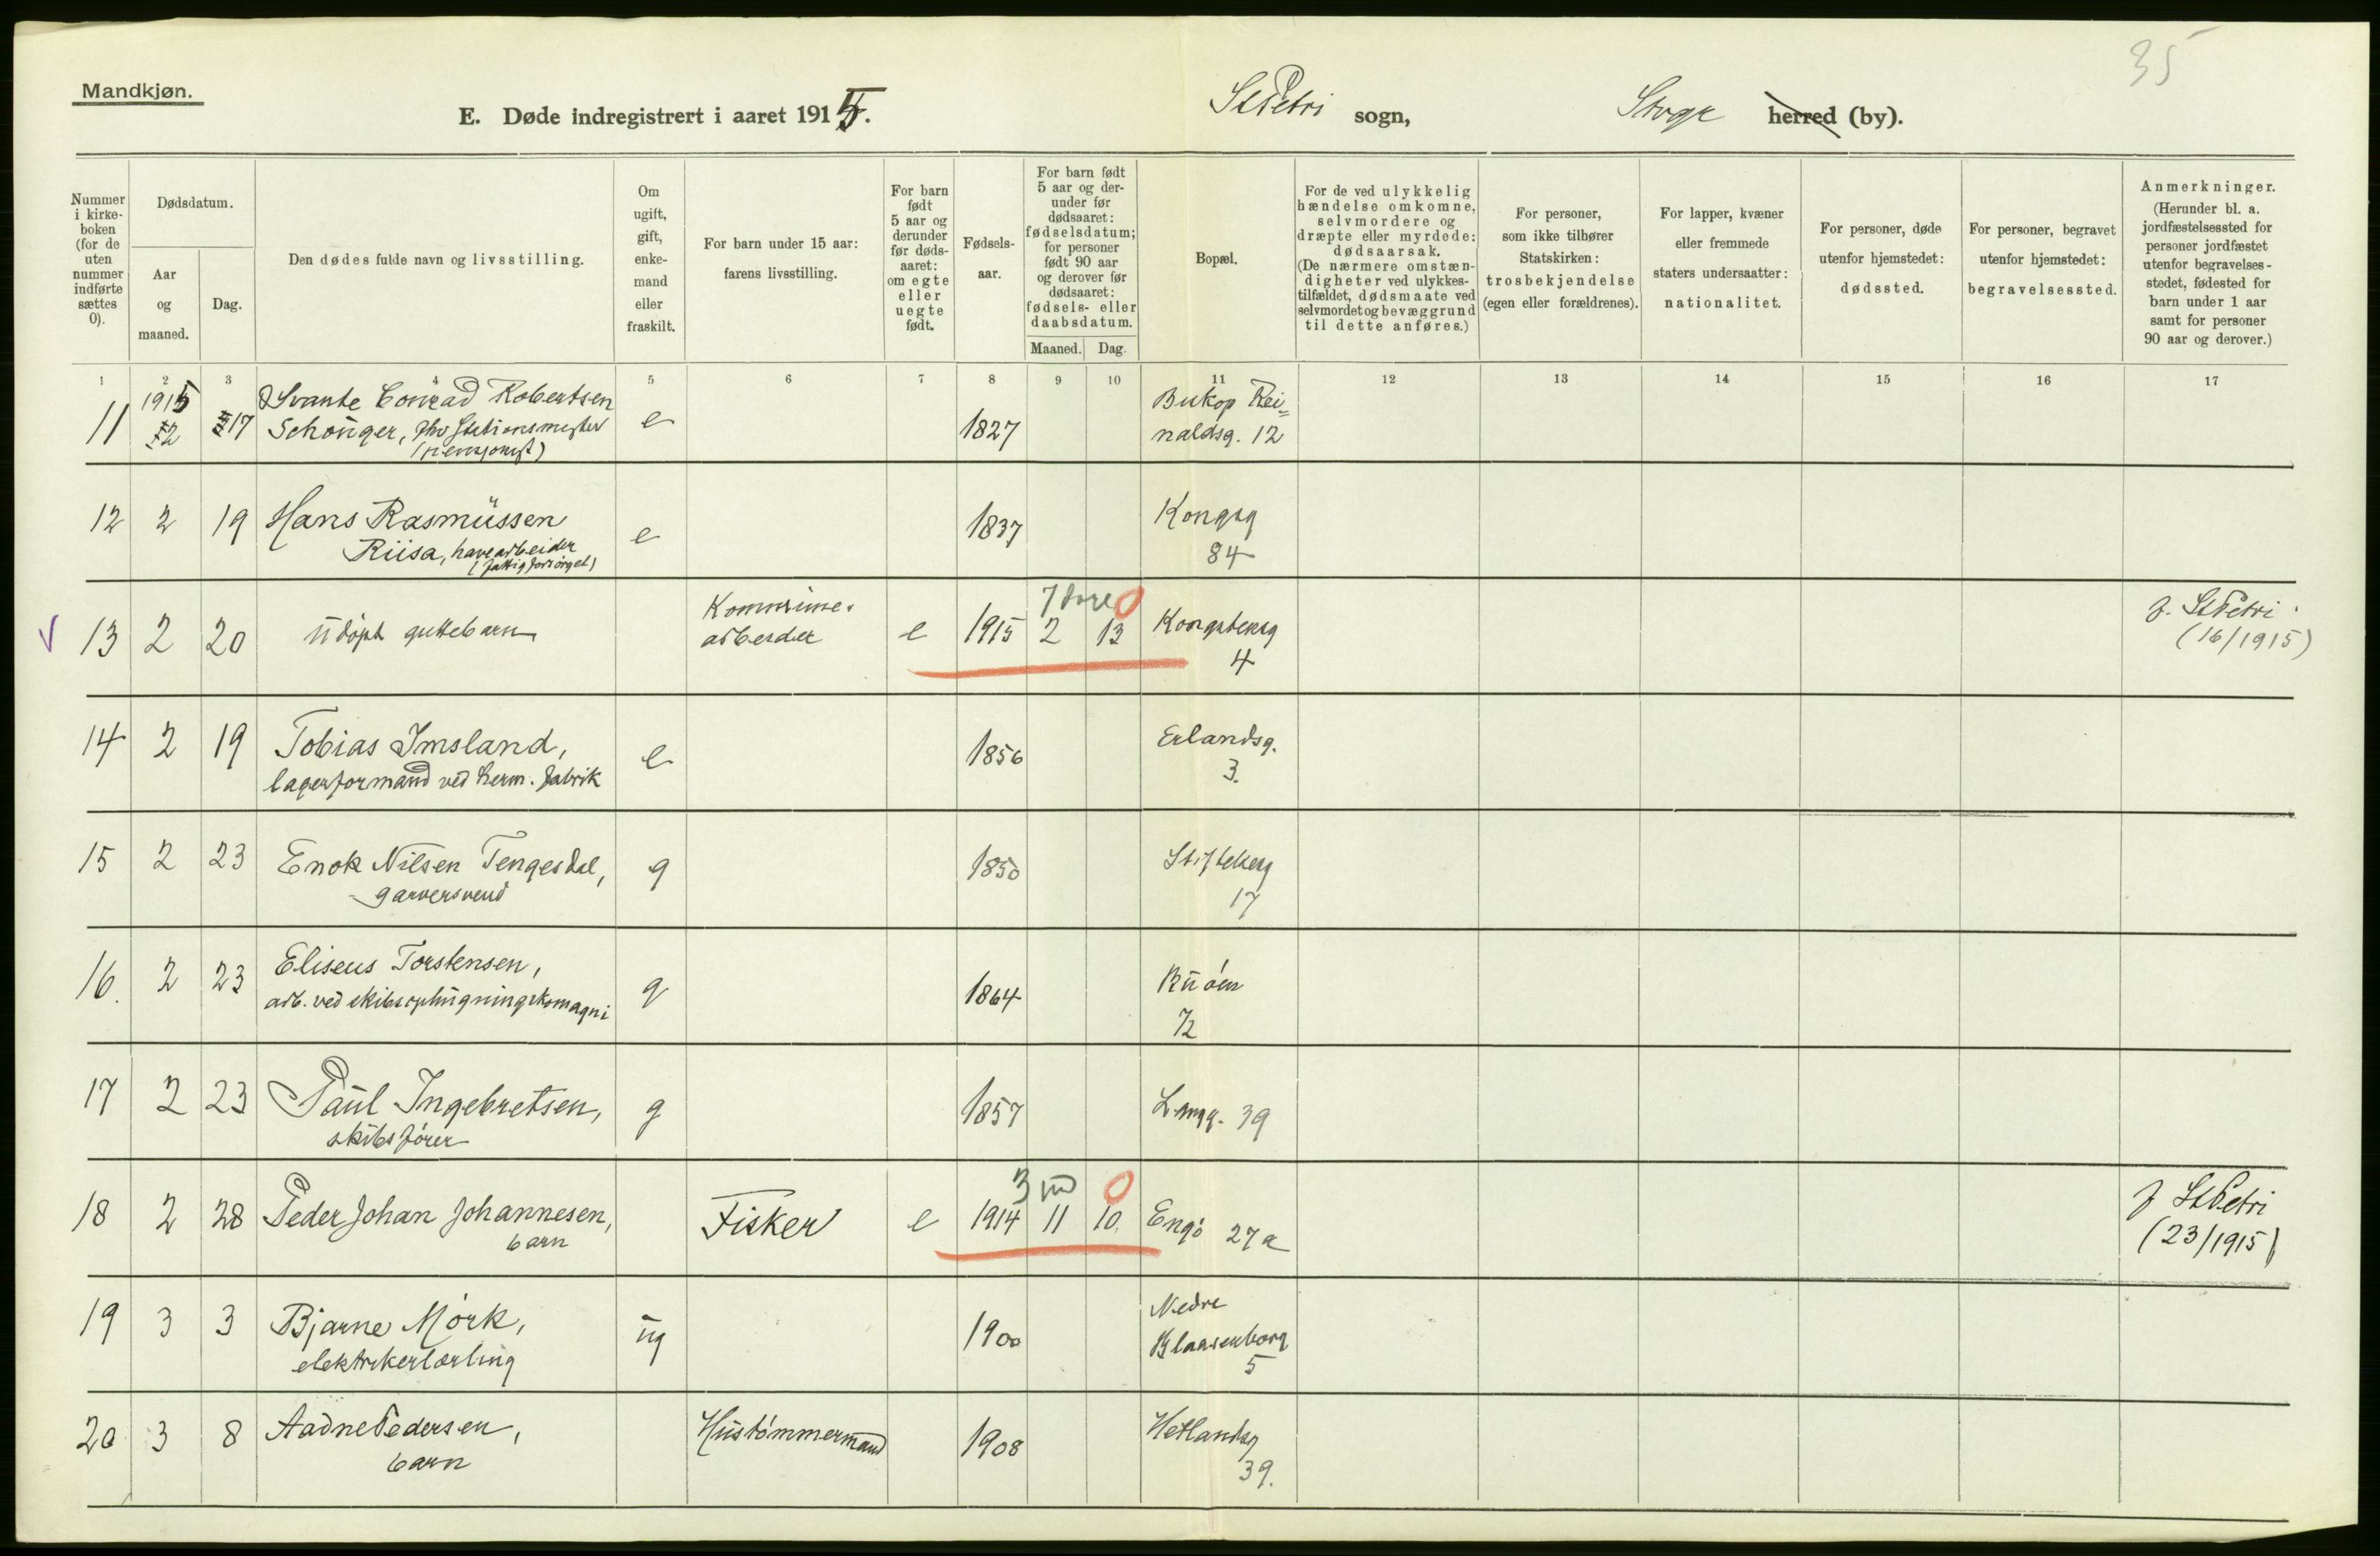 35
Mandkjøn.
E. Døde indregistrert i aaret 1915. St Petri sogn, Stvgr herred (by).
Nummer i kirkeboken (for de uten nummer indførte sættes 0).
Dødsdatum.
Aar og maaned.
Dag.
Den dødes fulde navn og livsstilling.
Om ugift, gift, enkemand eller fraskilt.
For barn under 15 aar: farens livsstilling.
For barn født 5 aar og derunder før dødsaaret: om egte eller uegte født.
Fødselsaar.
For barn født 5 aar og derunder før dødsaaret: fødselsdatum; for personer født 90 aar og derover før dødsaaret: fødsels- eller daabsdatum.
Maaned. Dag.
Bopæl.
For de ved ulykkelig hændelse omkomne, selvmordere og dræpte eller myrdede: dødsaarsak. (De nærmere omstændigheter ved ulykkestilfældet, dødsmaate ved selvmordet og bevæggrund til dette anføres.)
For personer, som ikke tilhører Statskirken: trosbekjendelse (egen eller forældrenes).
For lapper, kvæner eller fremmede staters undersaatter: nationalitet.
For personer, døde utenfor hjemstedet: dødssted.
For personer, begravet utenfor hjemstedet: begravelsessted.
Anmerkninger. (Herunder bl. a. jordfæstelsessted for personer jordfæstet utenfor begravelsesstedet, fødested for barn under 1 aar samt for personer 90 aar og derover.)
1 2 3 4 5 6 7 8 9 10 11 12 13 14 15 16 17
11 1915 2 17 Svante Conrad Robertsen
Schönger, fhv Stationsmester
(pensjonist)
e 1827 Biskop Rei=
naldsg. 12
12 2 19 Hans Rasmussen
Riisa, havearbeider
(fattigforsørget)
e 1837 Kongsg
84
13 2 20 udøpt guttebarn
Kommune-
arbeider
e 1915 2 13 Kongstensg
4
7 0
f. St Petri
(16/1915)
14 2 19 Tobias Imsland,
lagerformand ved herm. fabrik
e 1856 Erlandsg.
3.
15 2 23 Enok Nilsen Tengesdal,
garversvend
g 1850
17
16. 2 23 Eliseus Torstensen,
arb. ved skibsophugningskomagni
g 1864 Buøen
72
17 2 23 Paul Ingebretsen,
skibsfører
g 1857 Langg. 39
18 2 28 Peder Johan Johannesen,
barn
Fisker e 1914 11 10. Engø 27a
3 md 0
f St Petri
(23/1915)
19 3 3 Bjarne Mørk,
elektrikerlærling
ug 1900 Nedre
Blaasenborg
5
20 3 8 Aadne Pedersen,
barn
Hustømmermand 1908 Hetlandsg
39.